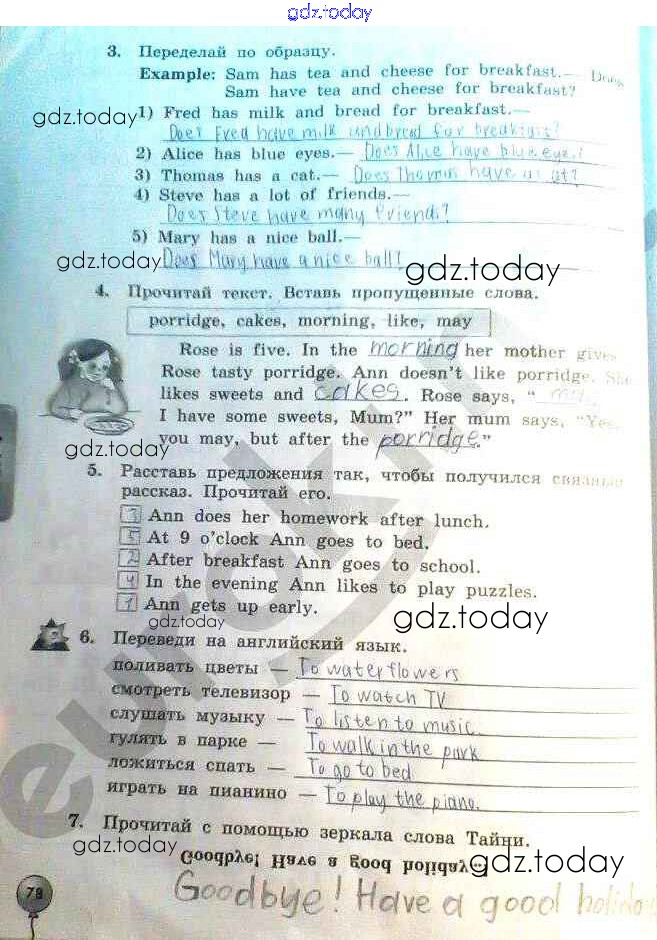 gdz.today
3. Переделай по образцу.
Example: Sam has tea and cheese for breakfast.—
Sam have tea and cheese for breakfast?
gdz.today
1) Fred has milk and bread for breakfast.—
Does Fred have milk and bread for breakfast?
2) Alice has blue eyes.— Does Alice have blue eyes?
3) Thomas has a cat.— Does Thomas have a cat?
4) Steve has a lot of friends.—
Does Steve have many friends?
5) Mary has a nice ball.—
gdz.today Does Mary have a nice ball? gdz.today
4. Прочитай текст. Вставь пропущенные слова.
porridge, cakes, morning, like, may
Rose is five. In the morning her mother gives
Rose tasty porridge. Ann doesn't like porridge. She
likes sweets and cakes. Rose says, "may
I have some sweets, Mum?" Her mum says, "Yes,
gdz.today you may, but after the porridge."
5. Расставь предложения так, чтобы получился связный
рассказ. Прочитай его.
3 Ann does her homework after lunch.
5 At 9 o'clock Ann goes to bed.
2 After breakfast Ann goes to school.
4 In the evening Ann likes to play puzzles.
1 Ann gets up early.
gdz.today gdz.today
6. Переведи на английский язык.
поливать цветы — To water flowers
смотреть телевизор — To watch TV
слушать музыку — To listen to music.
гулять в парке — To walk in the park
ложиться спать — To go to bed
играть на пианино — To play the piano.
7. Прочитай с помощью зеркала слова Тайни.
gdz.today
Goodbye! Have a good holiday! gdz.today
78 Goodbye! Have a good holida
eurokin